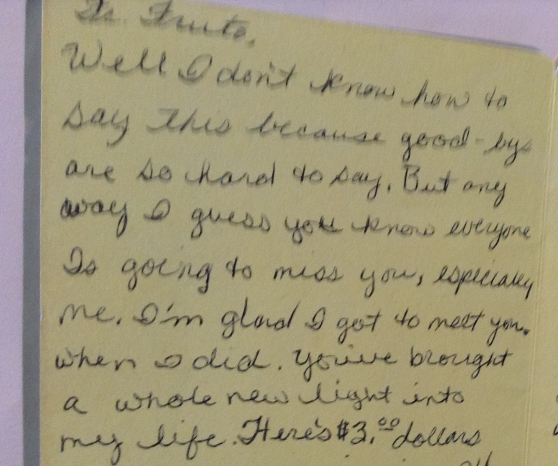 To. Fruto.
Well I don't know how to
say this because good-bys
are so hard to say. But any
way I guess you know everyone
Is going to miss you, especially
me. I'm glad I got to meet you.
when I did. You've brought
a whole new light into
my life. Here's $3.00 dollars